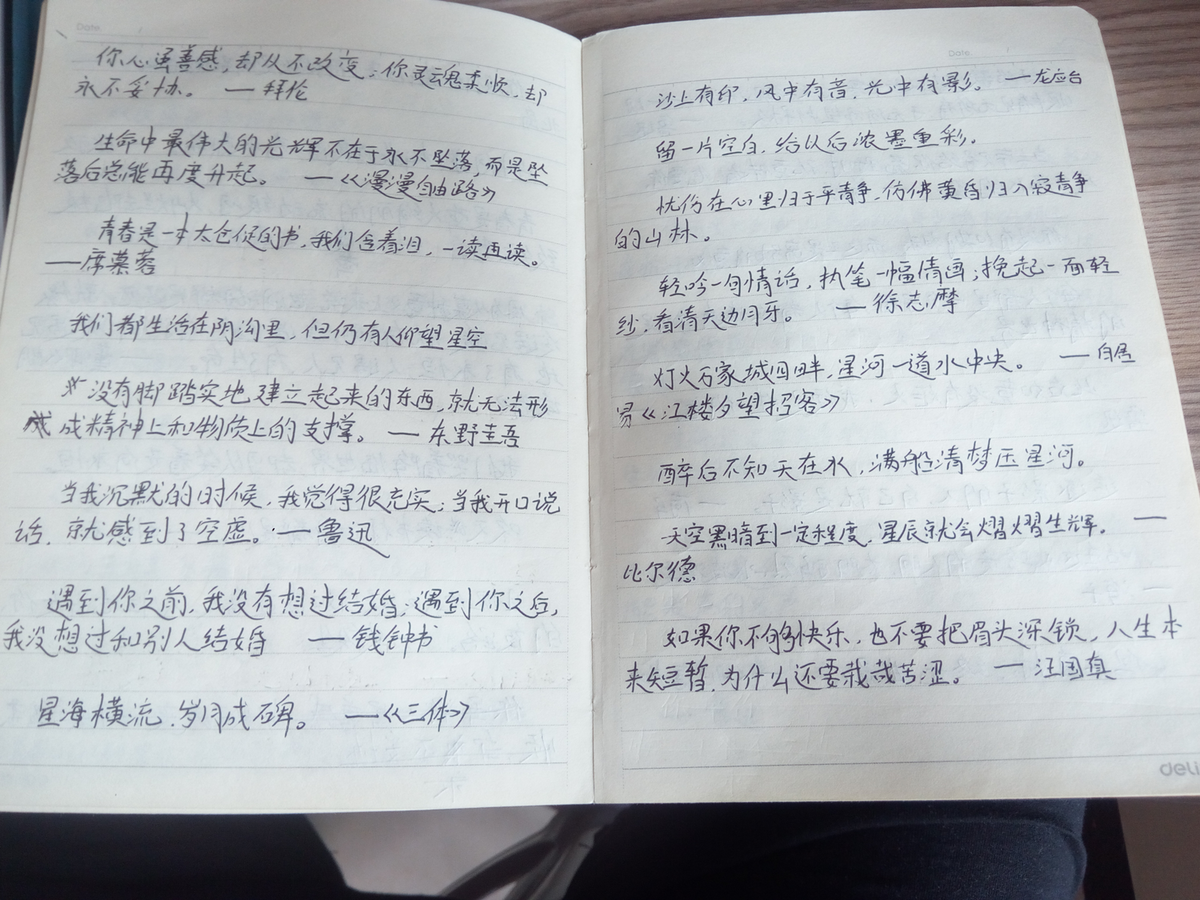 Date.
你心虽善感，却从不改变；你灵魂柔顺，却
永不妥协。 —拜伦
生命中最伟大的光辉不在于永不坠落，而是坠
落后总能再度升起。 —《漫漫自由路》
青春是一本太仓促的书，我们含着泪，一读再读。
—席慕蓉
我们都生活在阴沟里，但仍有人仰望星空
没有脚踏实地建立起来的东西，就无法形
成精神上和物质上的支撑。 —东野圭吾
当我沉默的时候，我觉得很充实；当我开口说
话，就感到了空虚。—鲁迅
遇到你之前，我没有想过结婚；遇到你之后，
我没想过和别人结婚 —钱钟书
星海横流，岁月成碑。 —《三体》
Date.
沙上有印，风中有音，光中有影。 —龙应台
留一片空白，给以后浓墨重彩。
忧伤在心里归于平静，仿佛黄昏归入寂静
的山林。
轻吟一句情话，执笔一幅情画；挽起一面轻
纱，看清天边月牙。 —徐志摩
灯火万家城四畔，星河一道水中央。 —白居
易《江楼夕望招客》
醉后不知天在水，满船清梦压星河。
天空黑暗到一定程度，星辰就会熠熠生辉。 —
比尔德
如果你不够快乐，也不要把眉头深锁，人生本
来短暂，为什么还要栽哉苦涩。 —汪国真
deli